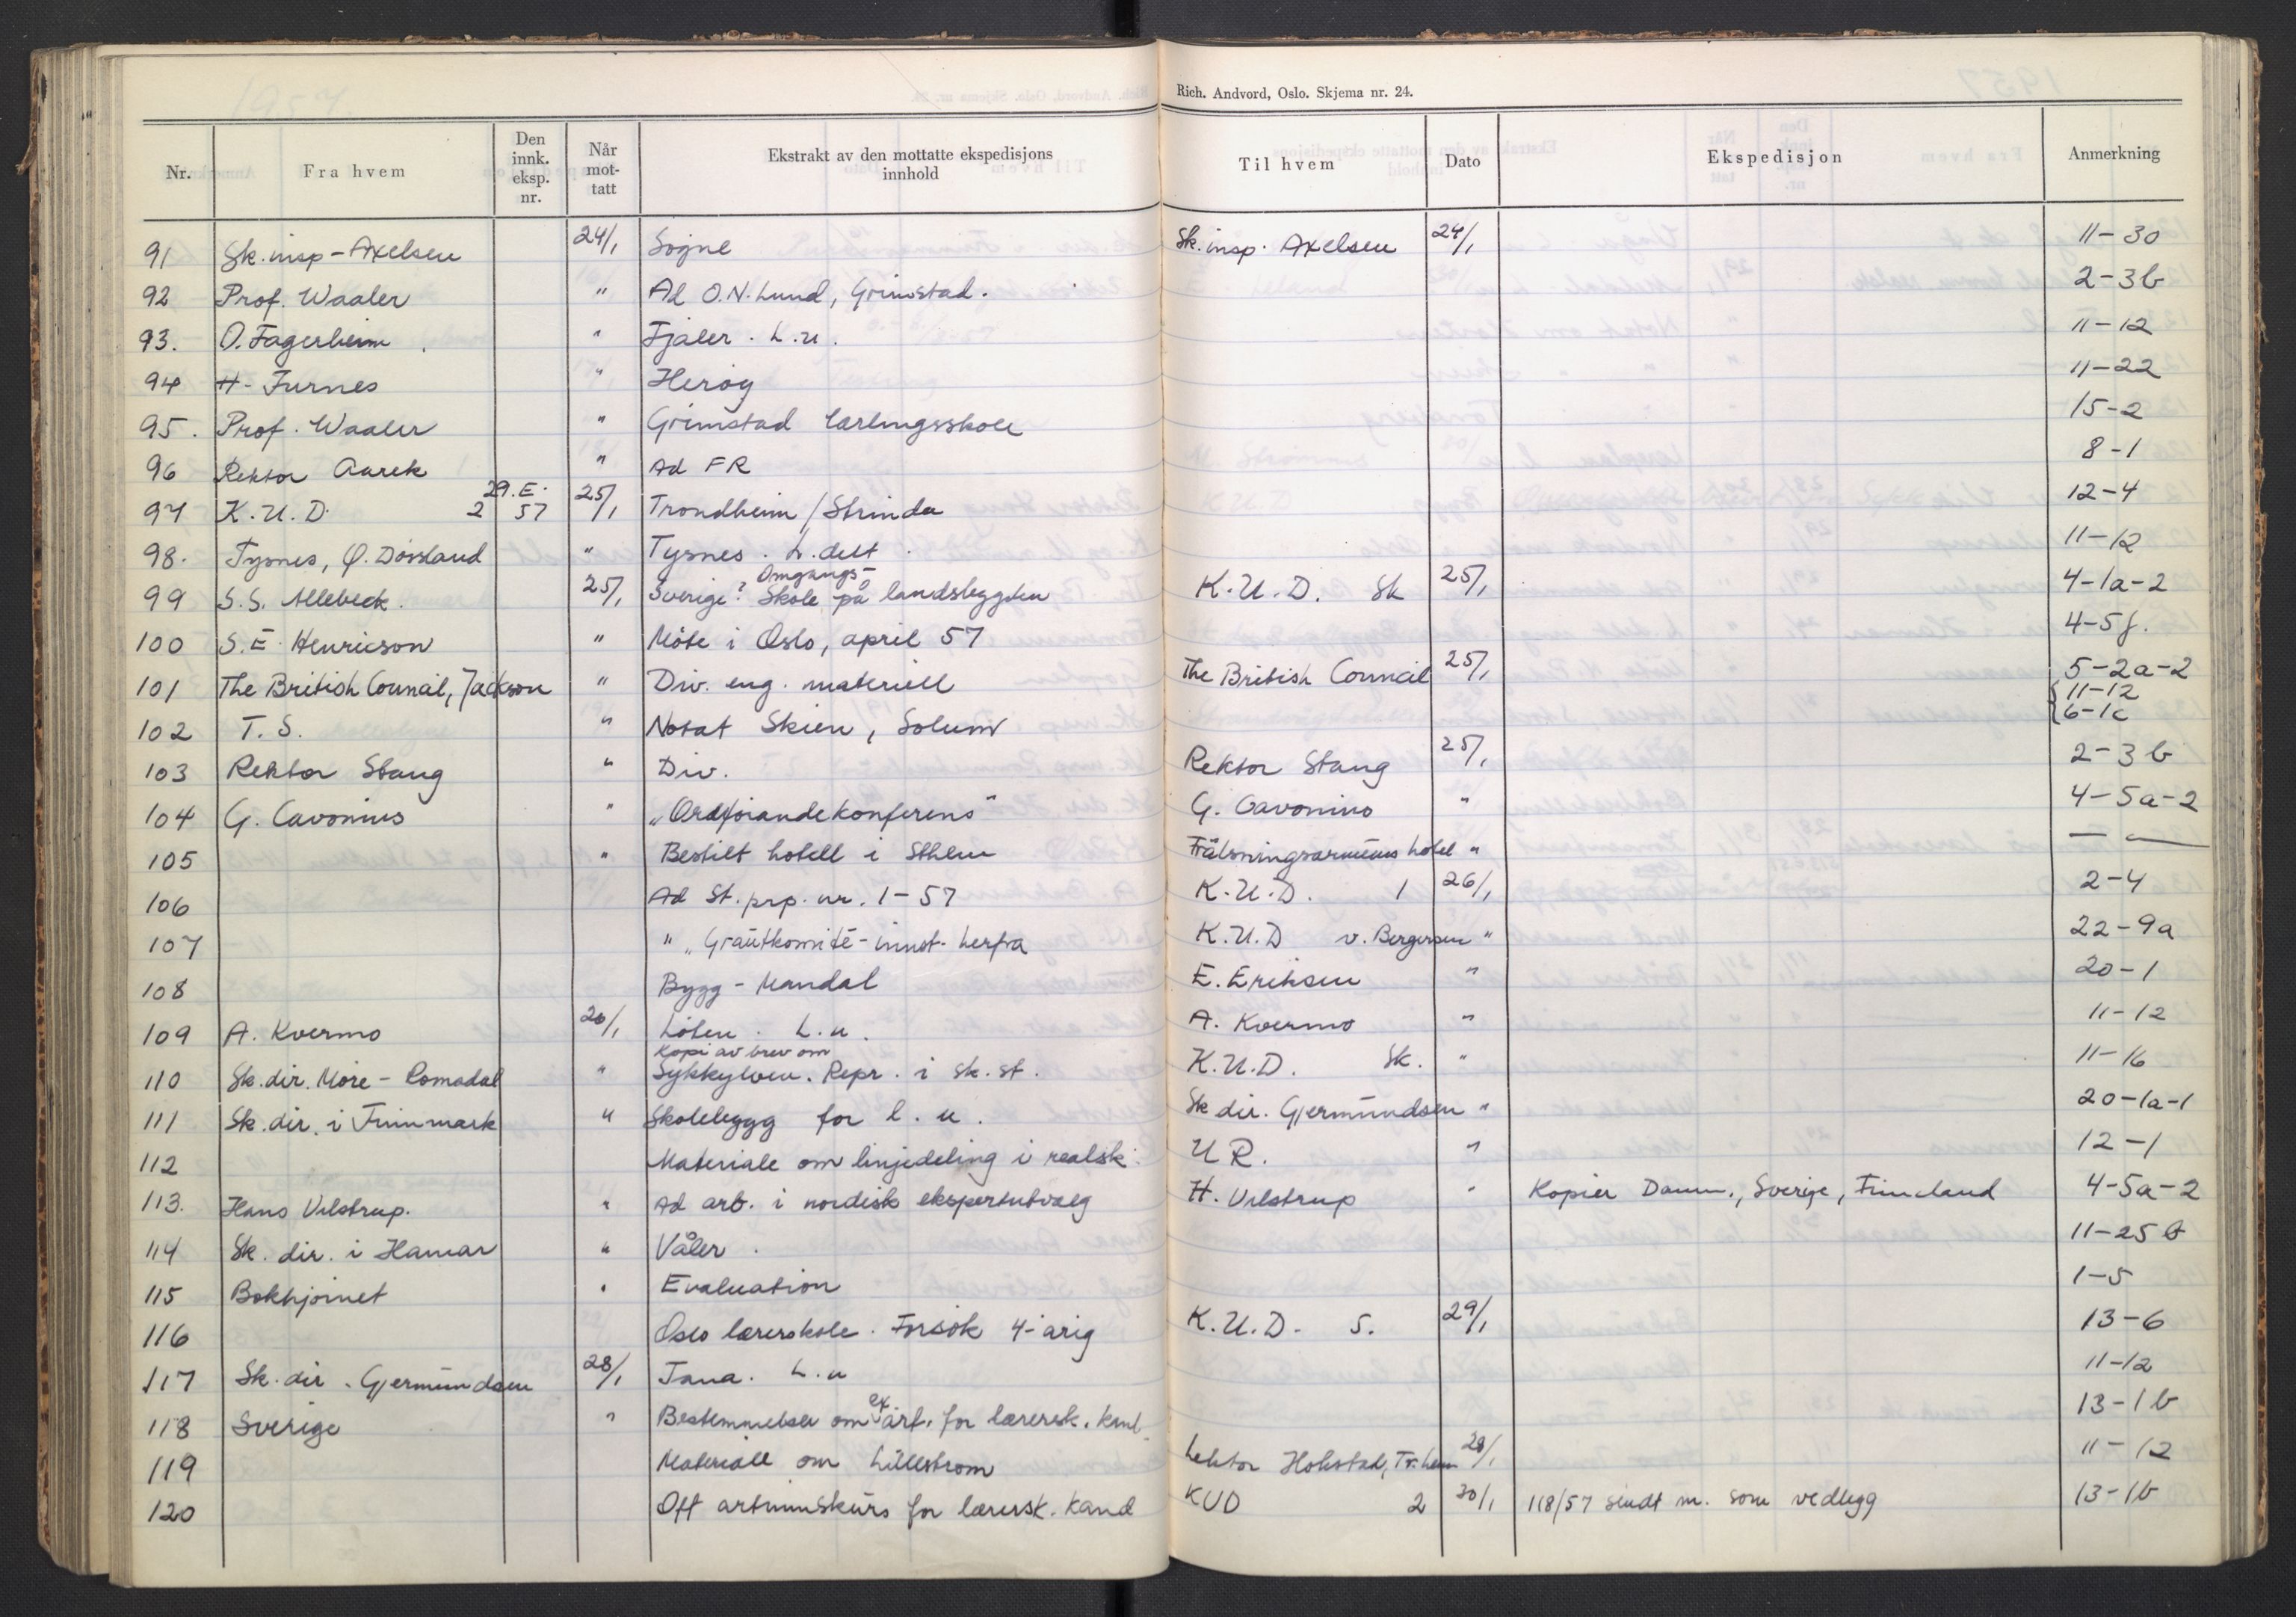 1957
Rich. Andvord, Oslo. Skjema nr. 24.
Nr. Fra hvem Den innk. eksp. nr. Når mot- tatt Ekstrakt av den mottatte ekspedisjons innhold Til hvem Dato Ekspedisjon Anmerkning
91 Sk.insp - Axelsen 24/1 Søgne Sk.insp. Axelsen 24/1 11-30
92 Prof. Waaler " Ad O.N. Lund, Grimstad. 2-3b
93. O. Fagerheim " Fjaler. L.u. 11-12
94 H. Furnes " Herøy 11-22
95. Prof. Waaler " Grimstad lærlingsskole 15-2
96 Rektor Aarek " Ad FR 8-1
97 K.U.D. 2 29.E. 57 25/1 Trondheim/Strinda 12-4
98. Tysnes, Ø. " Tysnes. L. delt. 11-12
99 S.S. Allebeck. 25/1 Sverige? Omgangs- Skole på landsbygden K.U.D. Sk 25/1 4-1a-2
100 S.E. Henricson " Møte i Oslo, april 57 4-5f.
101 The British Council, Jackson " Div. eng. materiell The British Council 25/1 5-2a-2
102 T.S. " Notat Skien, Solum {11-12 {6-1c
103 Rektor Stang " Div. Rektor Stang 25/1 2-3b
104 G. Cavonius " "Ordförandekonferens" G. Cavonius " 4-5a-2
105 " Bestilt hotell i Sthlm Frälsningsarméens hotel " — —
106 Ad St.prp. nr. 1-57 K.U.D. 1 26/1 2-4
107 " " - innst. herfra K.U.D v. Bergersen " 22-9a
108 Bygg - Mandal E. Eriksen " 20-1
109 A. Kvermo 26/1 Løten. L.u. A. Kvermo " 11-12
110 Sk.dir. Møre - Romsdal " Kopi av brev om Sykkylven. Repr. i sk.st. K.U.D. Sk. " 11-16
111 Sk.dir. i Finnmark " Skolebygg for l.u. Sk dir. Gjermundsen " 20-1a-1
112 Materiale om linjedeling i realsk. UR. " 12-1
113. Hans Vilstrup. " Ad arb. i nordisk ekspertutvalg H. Vilstrup " Kopier Danm., Sverige, Finnland 4-5a-2
114 Sk. dir. i Hamar " Våler. 11-25b
115 Bokhjørnet " Evaluation 1-5
116 Oslo lærerskole. Forsøk 4-årig K.U.D. S. 29/1 13-6
117 Sk.dir. Gjermundsen 28/1 Tana. L.u 11-12
118 Sverige " Bestemmelser om ex. arb. for lærersk. kand. 13-1b
119 Materiale om Lillestrøm Lektor Hokstad, Tr.heim 28/1 11-12
120 Off artiumskurs for lærersk. kand KUD 2 30/1 118/57 sendt m. som vedlegg 13-1b